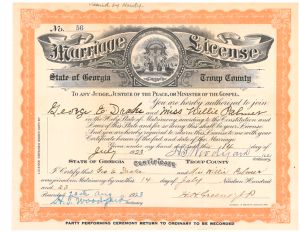 No. 56
Marriage License
State of Georgia Troup County
To any Judge, Justice of the Peace, or Minister of the Gospel.
You are hereby authorized to join
George D Drake and Miss Willie Palmer
in the Holy State of Matrimony according to the
State and for so doing this shall be your License. And
you are hereby required to return this License with your
Certificate hereon of the fact and date of the Marriage.
14 day of
July 1923
State of Georgia Certificate Troup County
I Certify that Geo D Drake and Miss Willie Palmer
were joined in Matrimony by me this 14 day of July Nineteen Hundred
and 23
1923
PARTY PERFORMING CEREMONY RETURN TO ORDINARY TO BE RECORDED